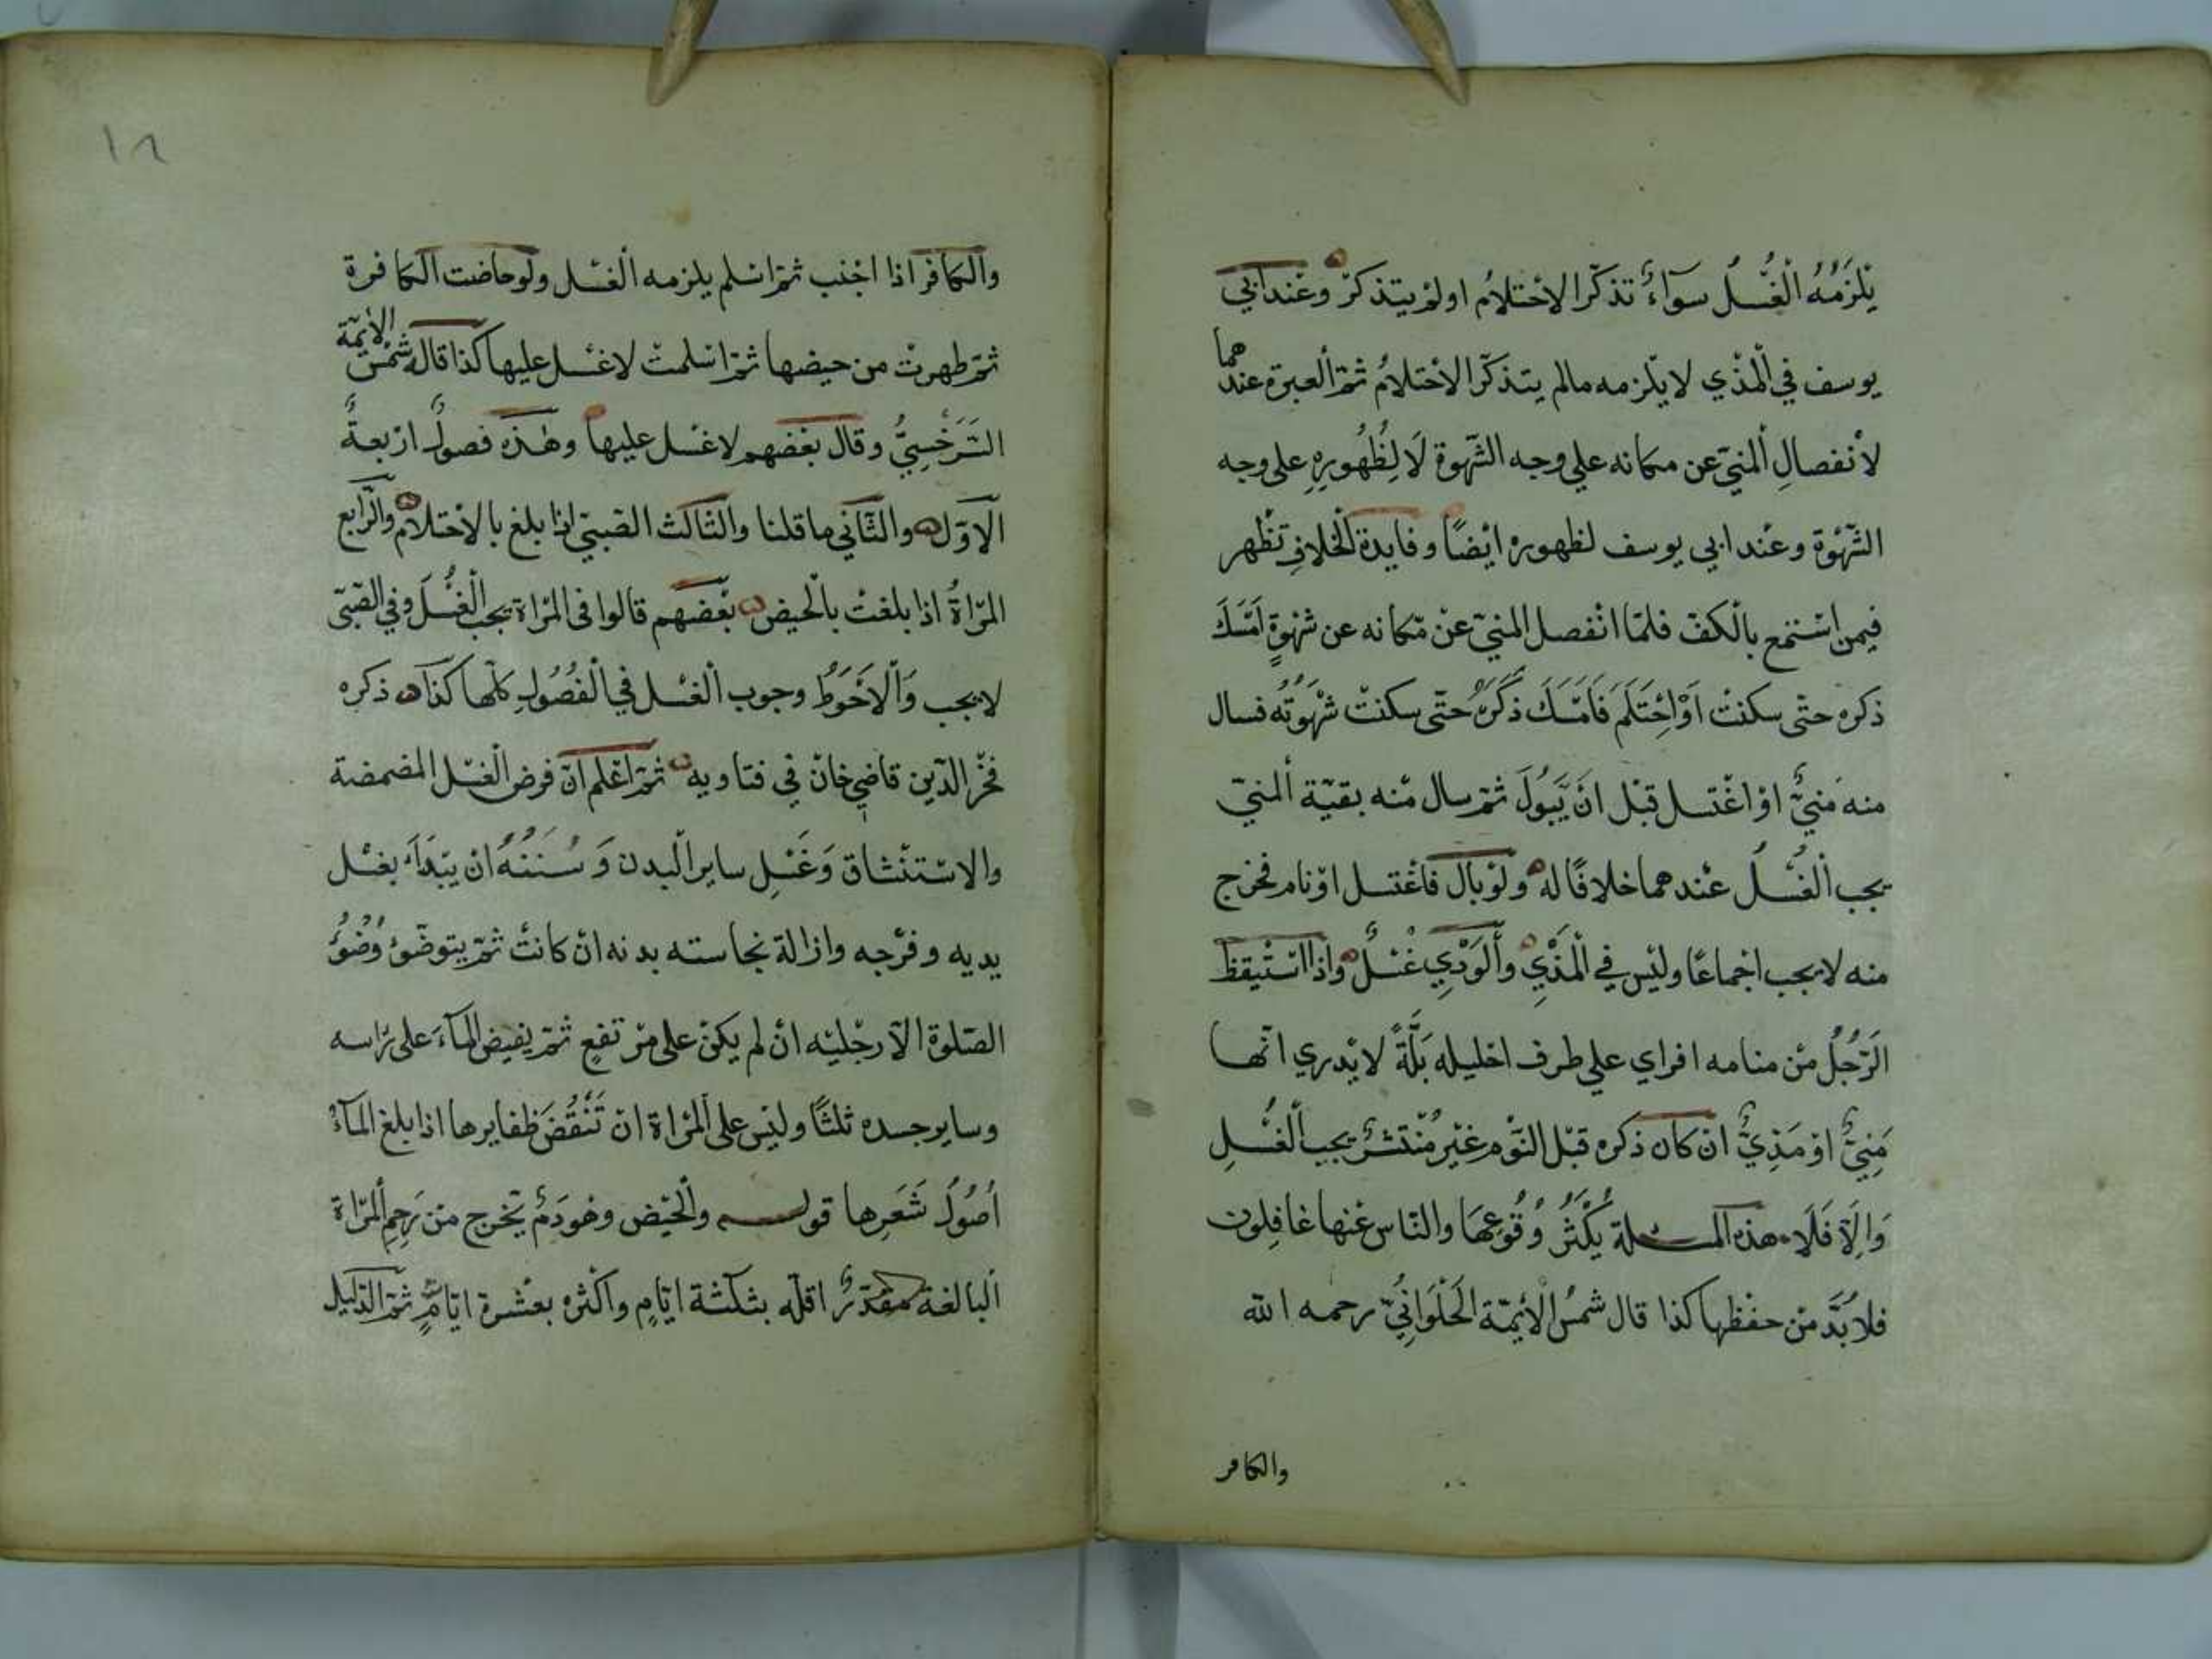 يَلْزَمُهُ الْغُسْلُ سوَآءٌ تذكّر الاحْتلامُ اولمْ يتذكرْ وعنْد ابي
يوسف في الْمذْي لا يلْزمه مالم يتذكّر الاحْتلامُ ثمّ العبرة عندهما
لأنفصالِ المنيّ عن مكانه علي وجه الشّهوة لَا لِظُهُورِهِ على وجه
الشّهْوة وعنْد ابي يوسف لظهوره ايْضًا وفايدة الْخلافِ تظْهر
فيمن اسْتمتع بالْكفّ فلمّا انْفصل المنيّ عنْ مّكانه عن شهْوةٍ اَمْسَكَ
ذكره حتّى سكنتْ اَوْاِحْتَلَمَ فَاَمْسَكَ ذَكَرَهُ حتّى سكنتْ شهْوتُه فسال
منه مَنيٌّ اوْ اغْتسل قبْل انْ يَّبُولَ ثمّ سال مْنه بقيّة المنيّ
يجب الْغُسْلُ عنْدهما خلافًا له ولوْ بال فاغْتسل اوْنام فخرج
منه لا يجب اجْماعًا وليْس في الْمَذْيِ والْوَدْيِ غُسْلٌ واذا اسْتيقظ
الرّجُلُ منْ منامه افراي علي طرف احليله بَلّةً لا يْدري انّها
مَنِيٌّ اوْ مَذِيٌّ انْ كان ذكره قبْل النّوْم غيْر مُنْتشرٌ يجب الْغُسْلِ
وَاِلّا فَلَا هذه المسئلة يَكْثُرُ وُقُوعهَا والنّاس عنْها غافِلون
فلا بُدَّ منْ حفْظها كذا قال شمسُ الْأئِمّة الْحَلْوَانِيُّ رحمه الله
والكافر
١٨
والكافر اذا اجْنب ثمّ اسْلم يلزمه الْغسْل ولوحاضت الكافرة
ثمّ طهرتْ من حيضها ثمّ اسْلمتْ لا غسْل عليها كذا قال شمْس الأئمّة
السَّرَخْسِيُّ وقال بعْضهم لا غسْل عليها وهٰذه فصولٌ ارْبعةٌ
الاوّل والثّاني ما قلنا والثّالث الصّبيّ اذا بلغ بالاحْتلام والرّابع
المرْاةُ اذا بلغتْ بالْحيض بعْضهم قالوا في المرْاة يجب الْغُسْلُ وفي الصّبيّ
لا يجب وَالْاَحْوَطُ وجوب الْغسْل في الْفُصُولِ كلّها كذا ذكره
فخْر الدّين قاضي خانْ في فتاويه ثمّ اعْلم انّ فرض الْغسْل المضمضة
والاسْتنْشاق وَغَسْلِ ساير الْبدن وَسُنَنُهُ انْ يبْدَاَ بغسْل
يديه وفرْجه وازالة نجاسته بدنه انْ كانتْ ثمّ يتوضّوءُ وُضُوُ
الصّلوة الّا رجْليْه انْ لم يكنْ على مرْتفعٍ ثمّ يفيض الْمآءَ على رأسه
وساير جسده ثلثًا وليْس على المرْاة ان تَنْقُضَ ظفايرها اذا بلغ المآءُ
اُصُولَ شَعَرِها قوله والْحيْض وهُودَمٌ يّخْرج منْ رَحِمِ الْمرْاة
البالغة مقدّرٌ اقلّه بثلثة ايّامٍ واكثره بعشرة ايّامٍ ثمّ الدّليل